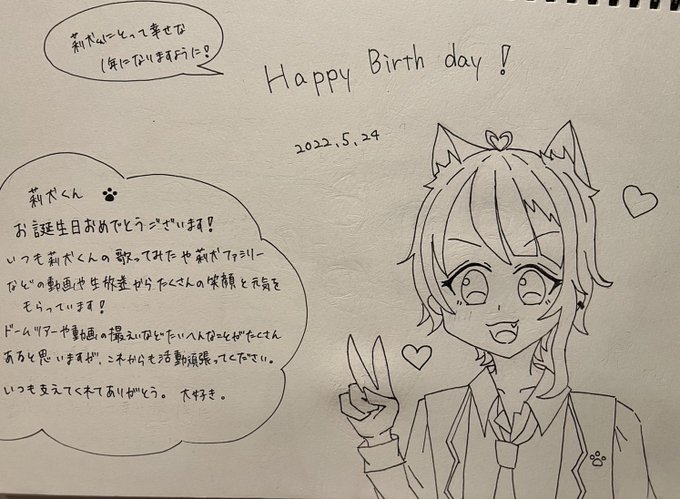 莉犬くんにとって幸せな
1年になりますように!
Happy Birth day !
2022.5.24
莉犬くん
お誕生日おめでとうございます!
いつも莉犬くんの歌ってみたや莉犬ファミリー
などの動画や生放送からたくさんの笑顔と元気を
もらっています!
ドームツアーや動画の撮えいなどたいへんなことがたくさん
あると思いますが、これからも活動頑張ってください。
いつも支えてくれてありがとう。大好き。